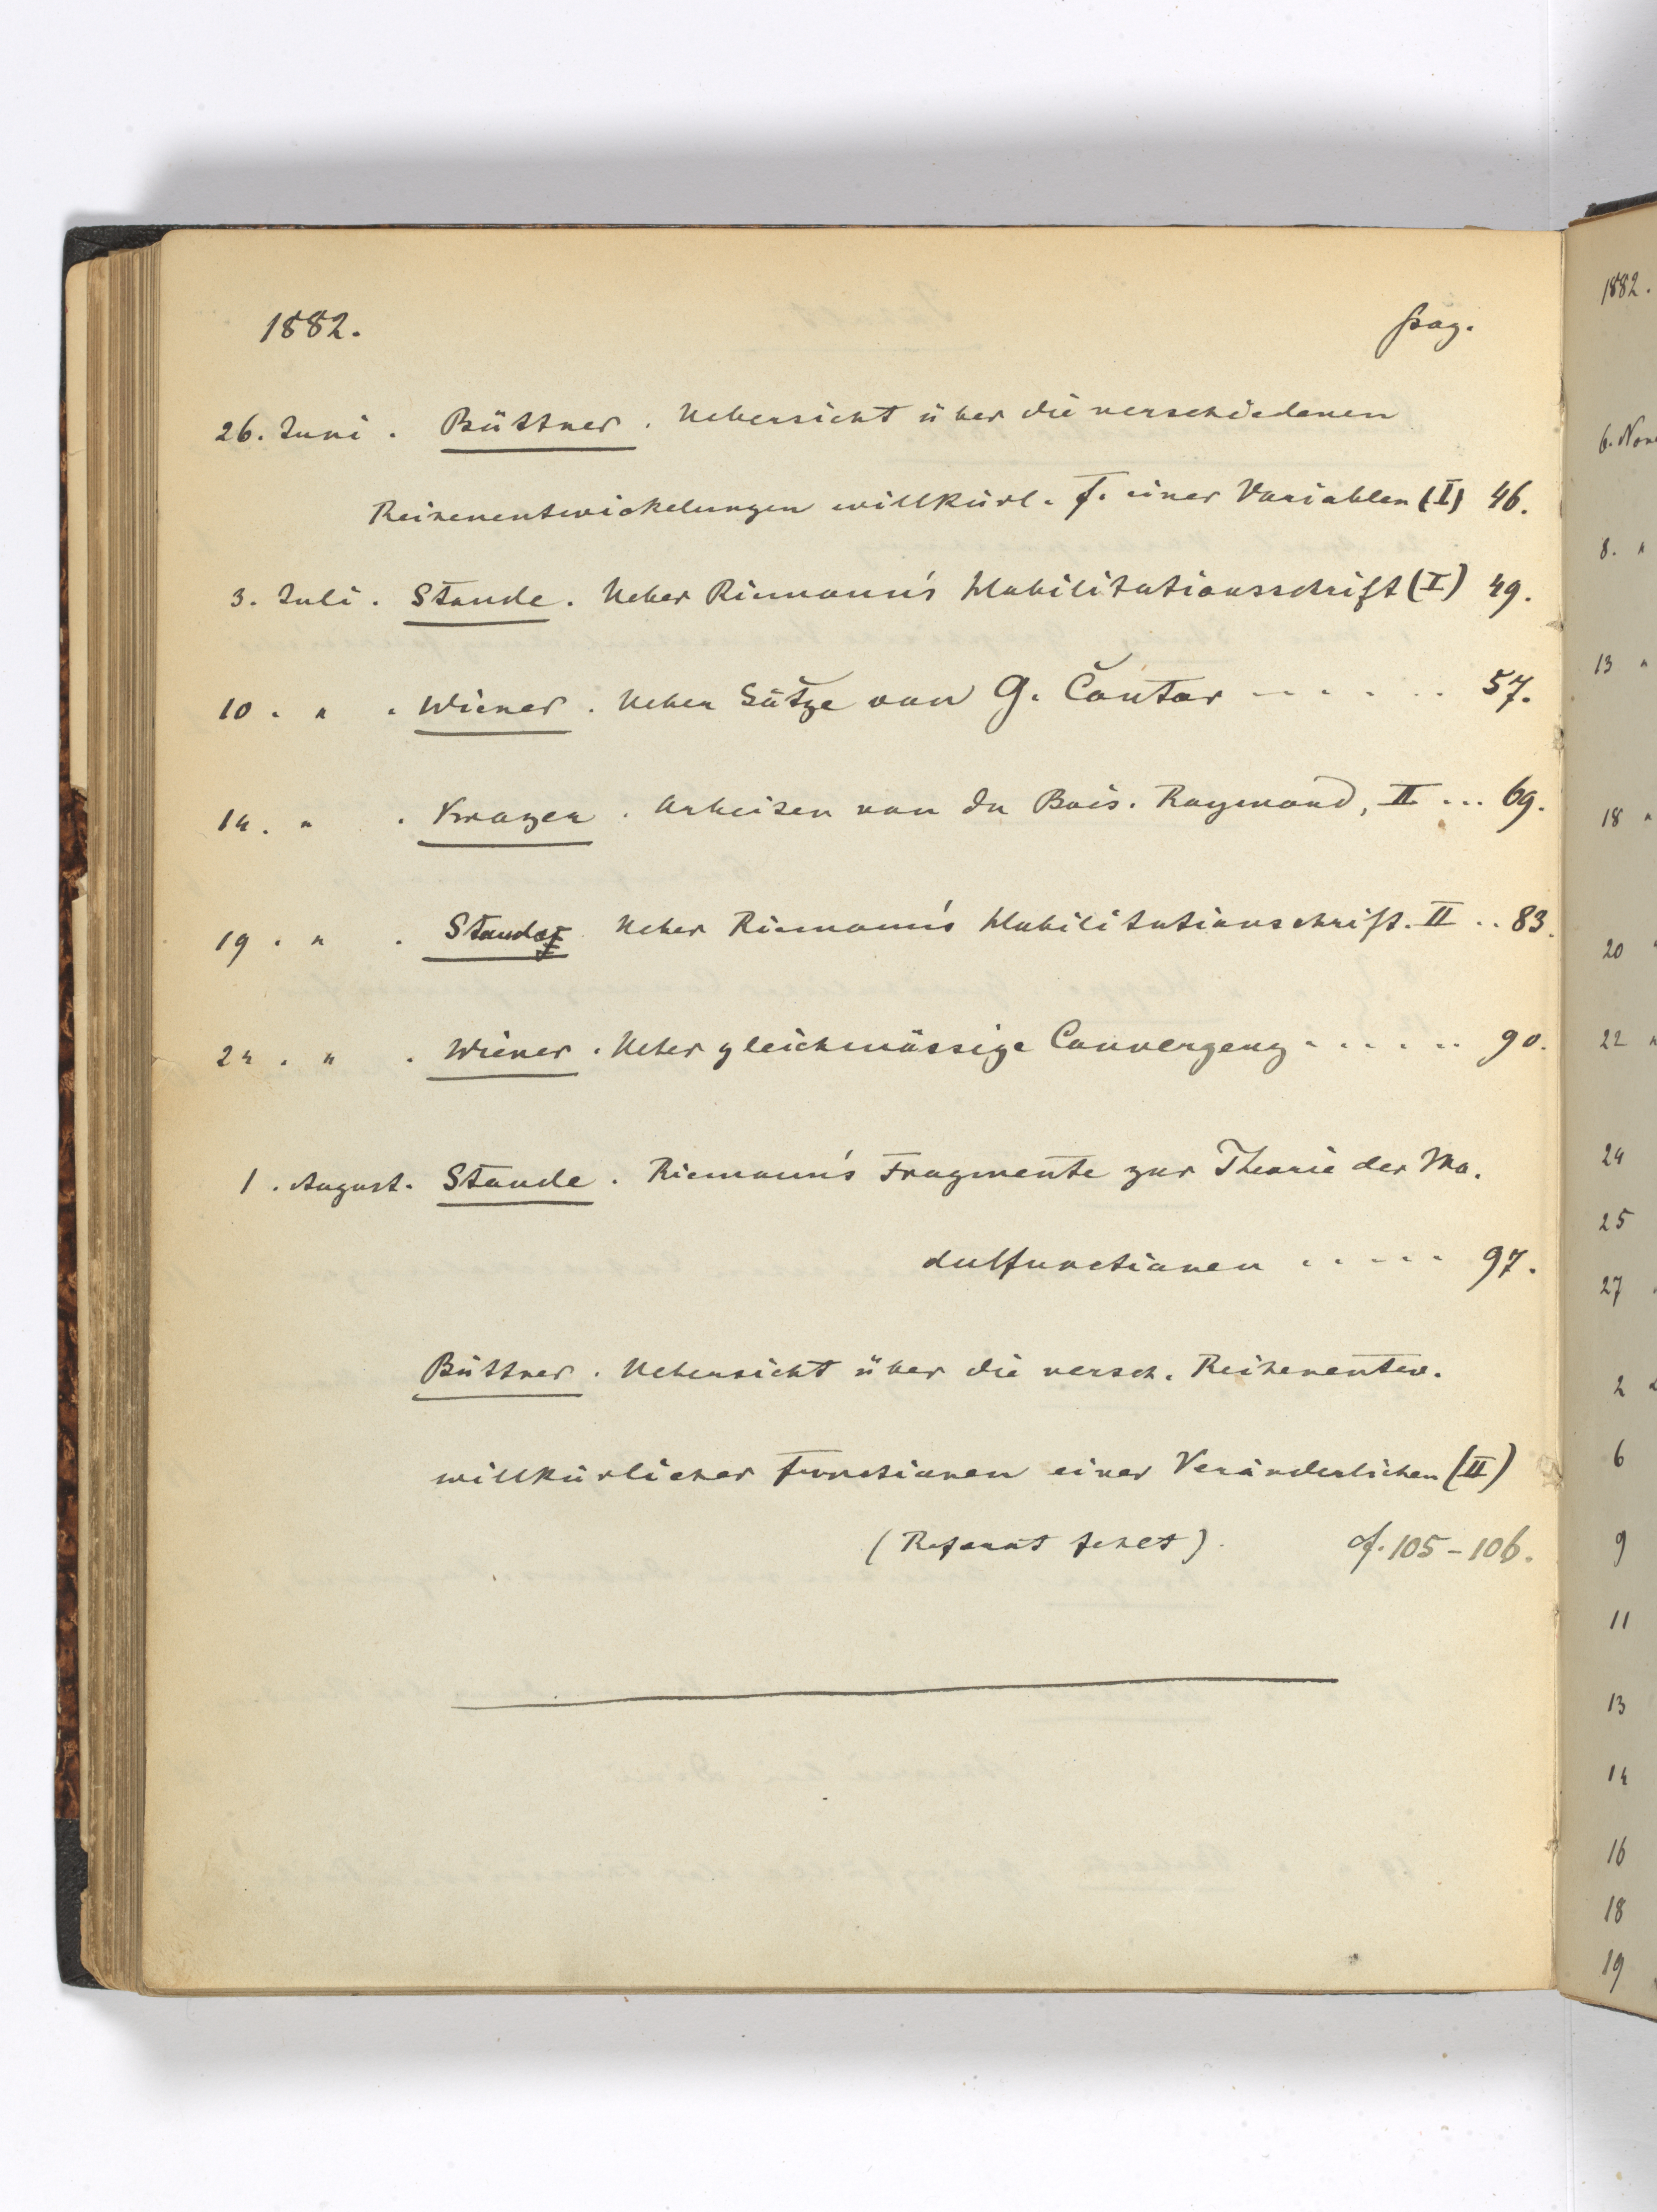 1882. pag.
26. Juni. Büttner. Uebersicht über die verschiedenen
Reihenentwickelungen willkürl. f. einer Variablen (I) 46.
3. Juli. Staude. Ueber Riemann's Habilitationsschrift (I) 49.
10. " . Wiener. Ueber Sätze von G. Cantor - - . . . . 57.
14. " . Krazer. Arbeiten von Du Bois-Reymond, II ... 69.
19. " . Staude Ueber Riemann's Habilitationschrift. II .. 83.
24. " . Wiener. Ueber gleichmässige Convergenz . . . . .. 90.
1. August. Staude. Riemann's Fragmente zur Theorie der Mo-
dulfunctionen . . - - - 97.
Büttner. Uebersicht über die versch. Reihenentw.
willkürlicher Functionen einer Veränderlichen (II)
(Referat fehlt). cf. 105-106.
1882.
6. Nov
8. "
13 "
18 "
20 "
22 "
24
25
27
2
6
9
11
13
14
16
18
19